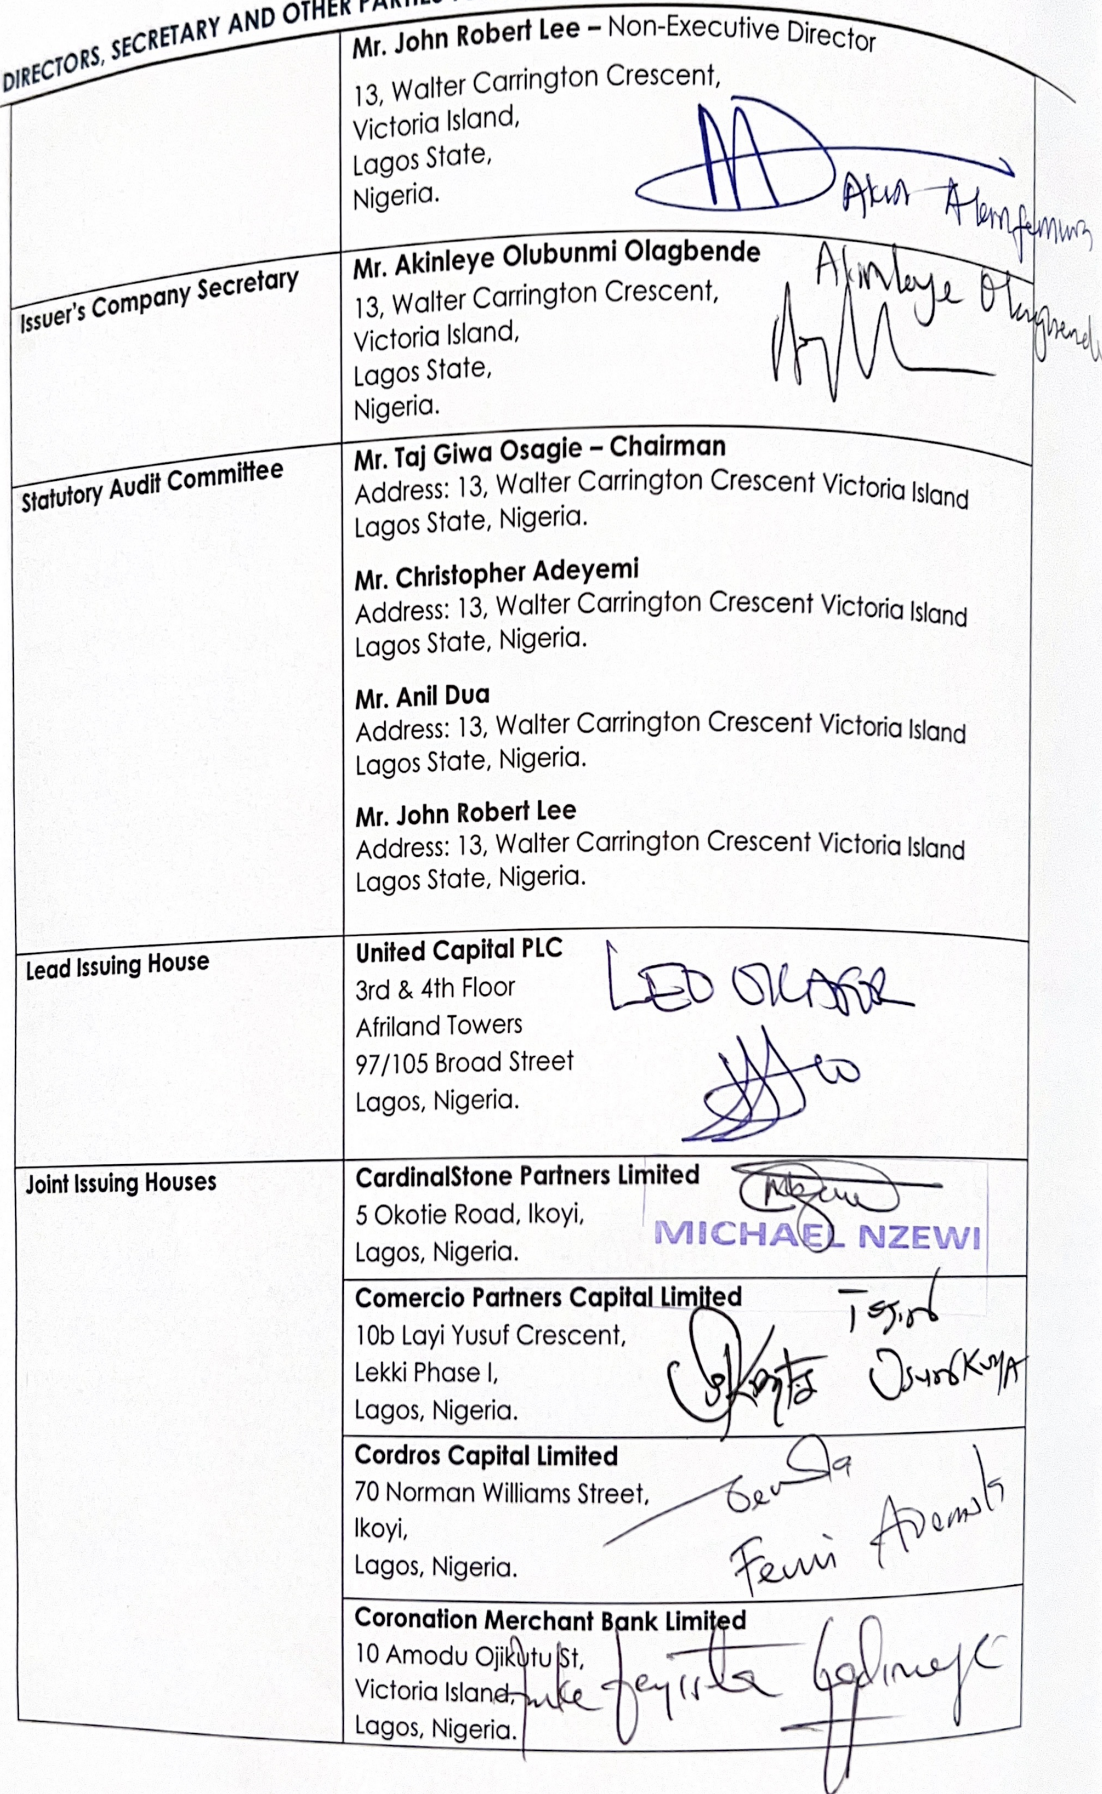 DIRECTORS, SECRETARY AND OTHER
Mr. John Robert Lee – Non-Executive Director
13, Walter Carrington Crescent,
Victoria Island,
Lagos State,
Nigeria.
Issuer's Company Secretary
Mr. Akinleye Olubunmi Olagbende
13, Walter Carrington Crescent,
Victoria Island,
Lagos State,
Nigeria.
Akinleye Olagbende
Statutory Audit Committee
Mr. Taj Giwa Osagie – Chairman
Address: 13, Walter Carrington Crescent Victoria Island
Lagos State, Nigeria.
Mr. Christopher Adeyemi
Address: 13, Walter Carrington Crescent Victoria Island
Lagos State, Nigeria.
Mr. Anil Dua
Address: 13, Walter Carrington Crescent Victoria Island
Lagos State, Nigeria.
Mr. John Robert Lee
Address: 13, Walter Carrington Crescent Victoria Island
Lagos State, Nigeria.
Lead Issuing House
United Capital PLC
3rd & 4th Floor
Afriland Towers
97/105 Broad Street
Lagos, Nigeria.
LEO OKAFOR
Joint Issuing Houses
CardinalStone Partners Limited
5 Okotie Road, Ikoyi,
Lagos, Nigeria.
MICHAEL NZEWI
Comercio Partners Capital Limited
10b Layi Yusuf Crescent,
Lekki Phase I,
Lagos, Nigeria.
Cordros Capital Limited
70 Norman Williams Street,
Ikoyi,
Lagos, Nigeria.
Femi
Coronation Merchant Bank Limited
10 Amodu Ojikutu St,
Victoria Island,
Lagos, Nigeria.